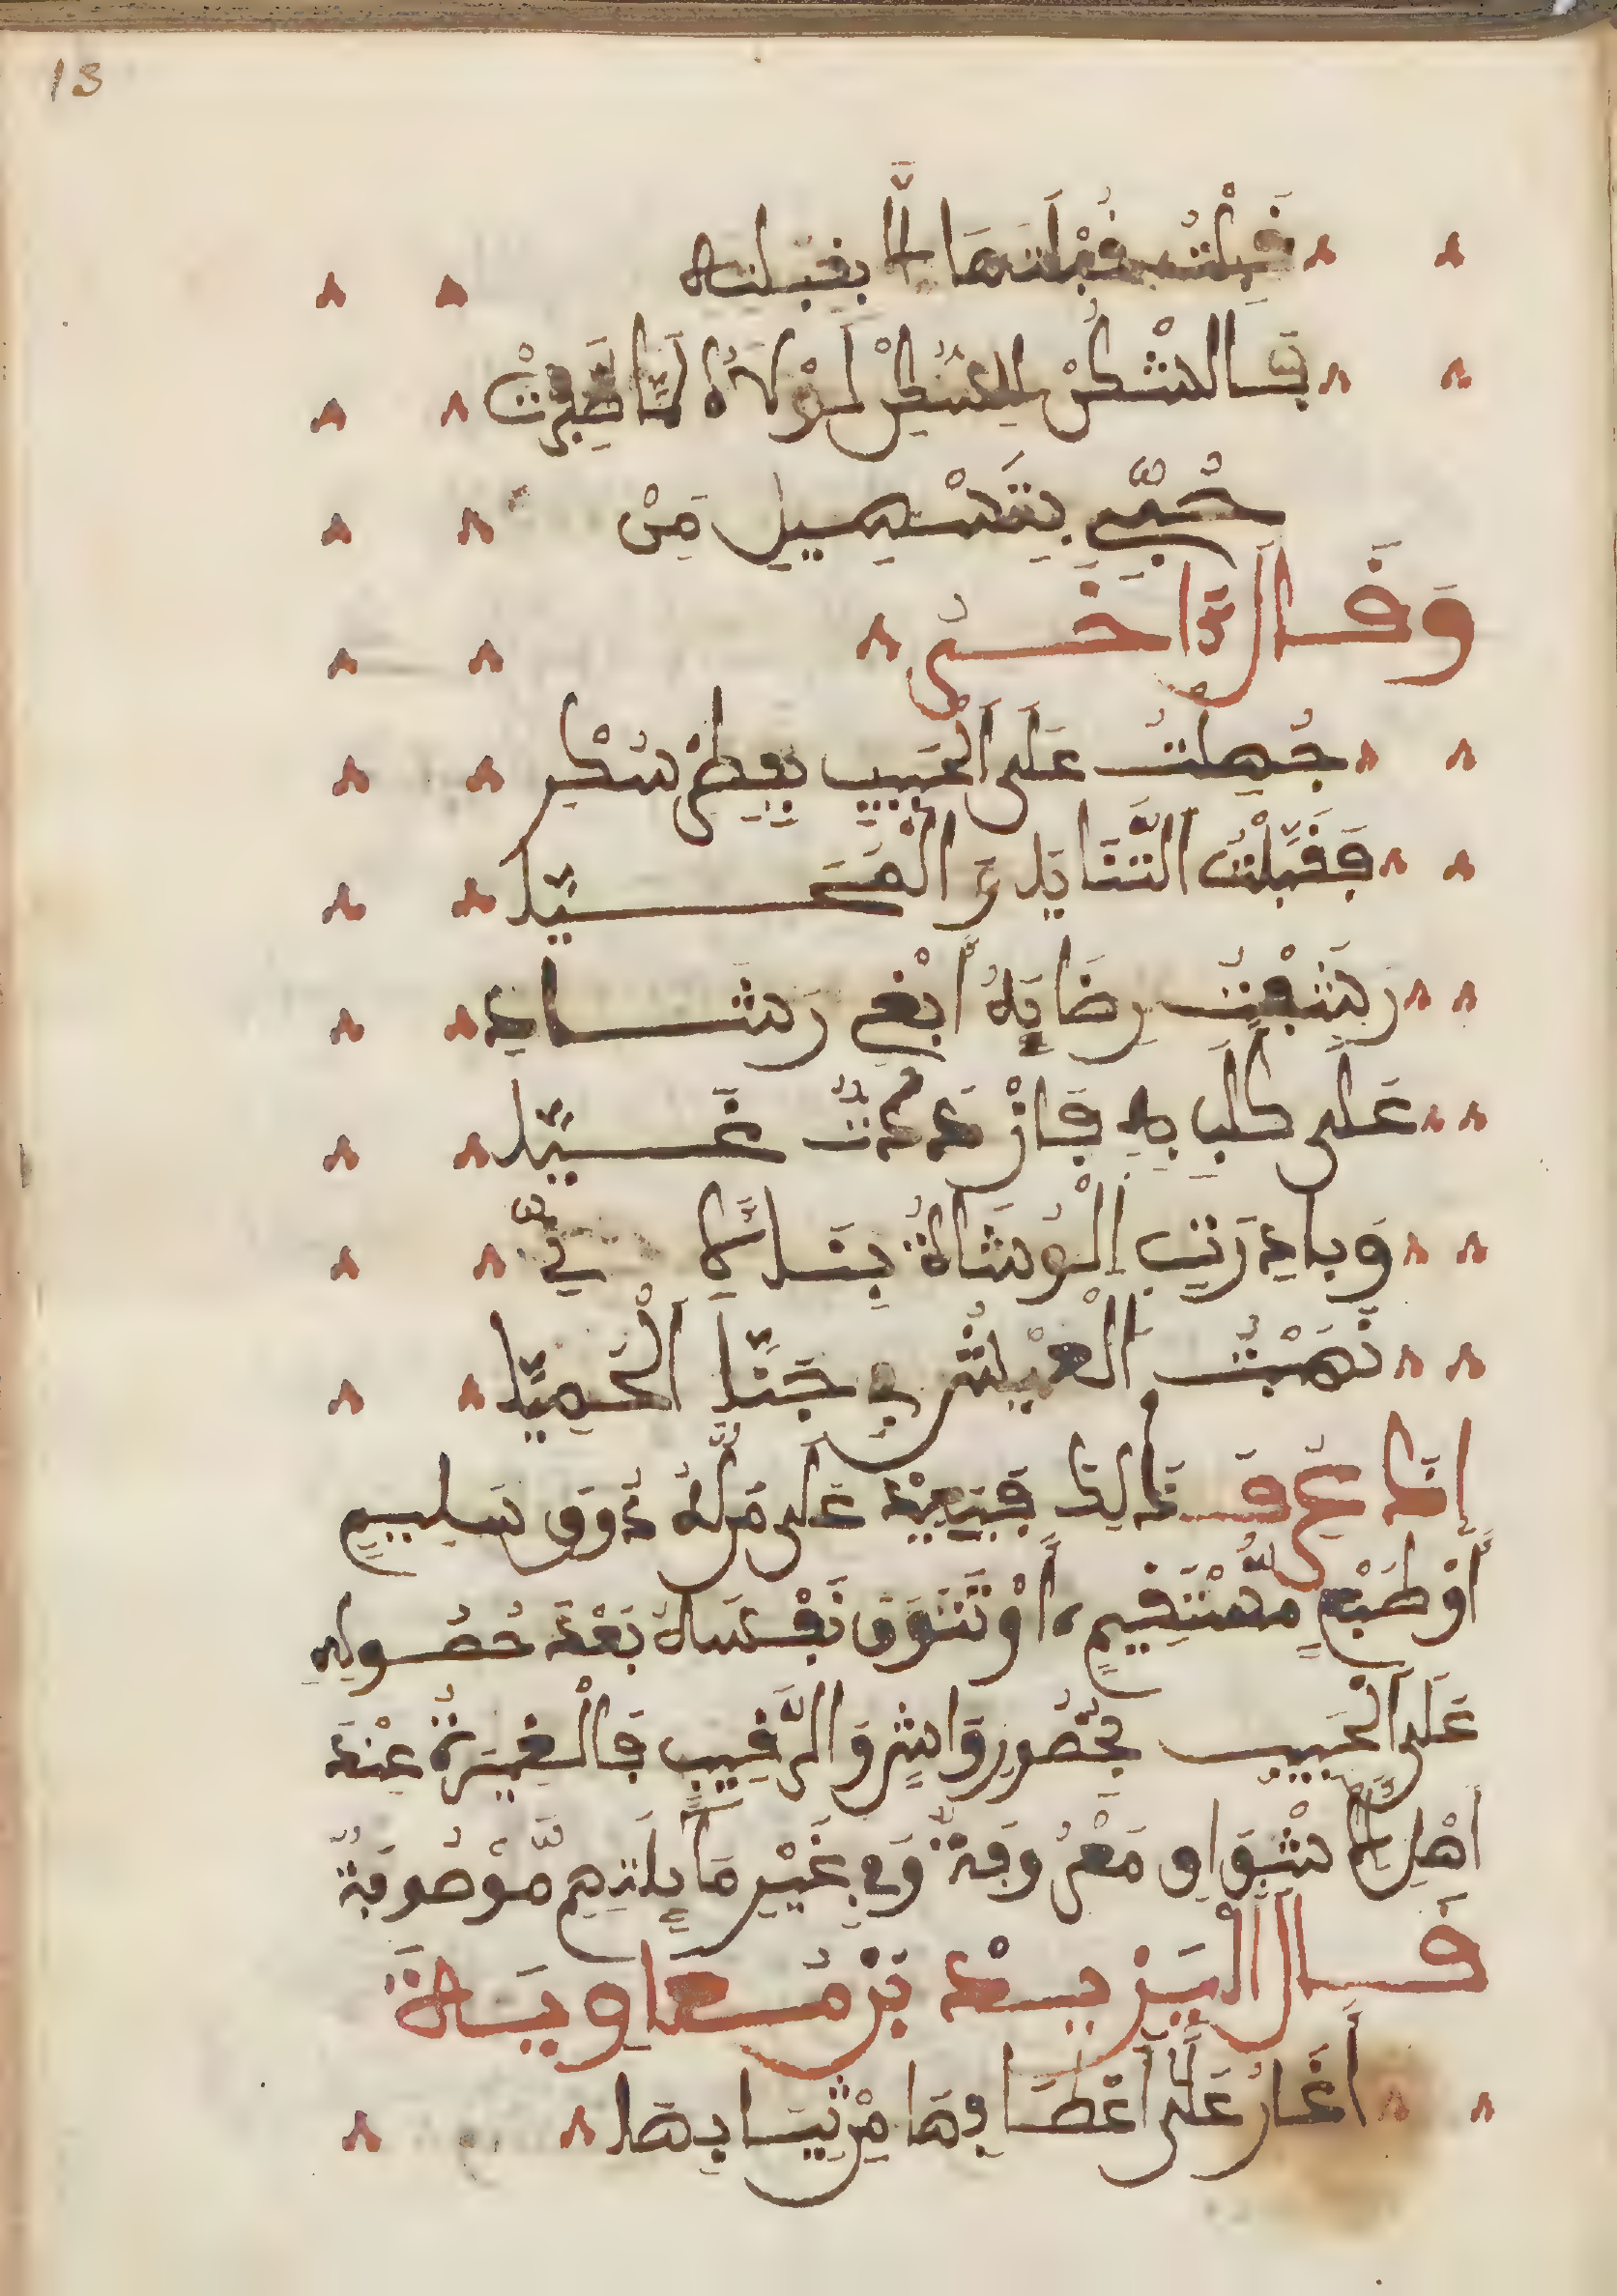 13
قبلت قبلتها لما بقبلته
بسالشكر للسكر لولاه لما ظفرت
حبي بتسهيل من
وقال اخر
جهلت على الحبيب بفطر سكر
فقبلت الثنايا و المحيا
رشفت رضابه ابغي رشادي
على كلبي به فازددت غيا
وبادرت الوشاة بنا كا في
نهبت العيش في جنا الحميا
إذا عرفت ذالك فبعيد على من له ذوق سليم
أو طبع مستقيم، أو تتوق نفسه بعد حصوله
على الحبيب بحضور واش والرقيب فالغيرة عند
اهل الاشواق معروفة وفي غير ما بلدهم موصوفة
قال اليزيد بن معاوية
أغار على أعطافها من ثيابها